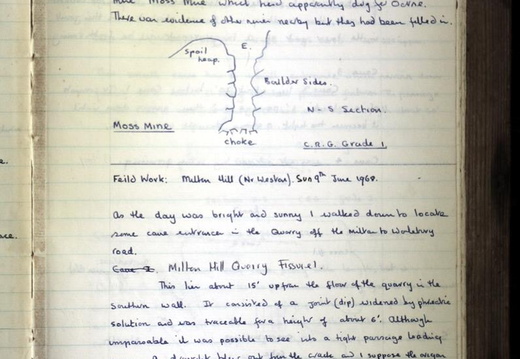 Mine Moss Mine which had apparently dug for Ochre.
There was evidence of other mines nearby but they had been filled in.
E.
Spoil heap.
Boulder Sides.
N-S Section.
Moss Mine
choke
C.R.G. Grade 1.
Feild Work: Milton Hill (Nr Weston). Sun 9th June 1968.
As the day was bright and sunny I walked down to locate
some cave entrances in the Quarry off the Milton to Worlebury
road.
Milton Hill Quarry Fissure 1.
This lies about 15' up from the floor of the quarry in the
southern wall. It consisted of a joint (dip) widened by phreatic
solution and was traceable for a height of about 6'. Although
impassable it was possible to see into a tight passage leading
A draught blew out from the crack and I suppose the